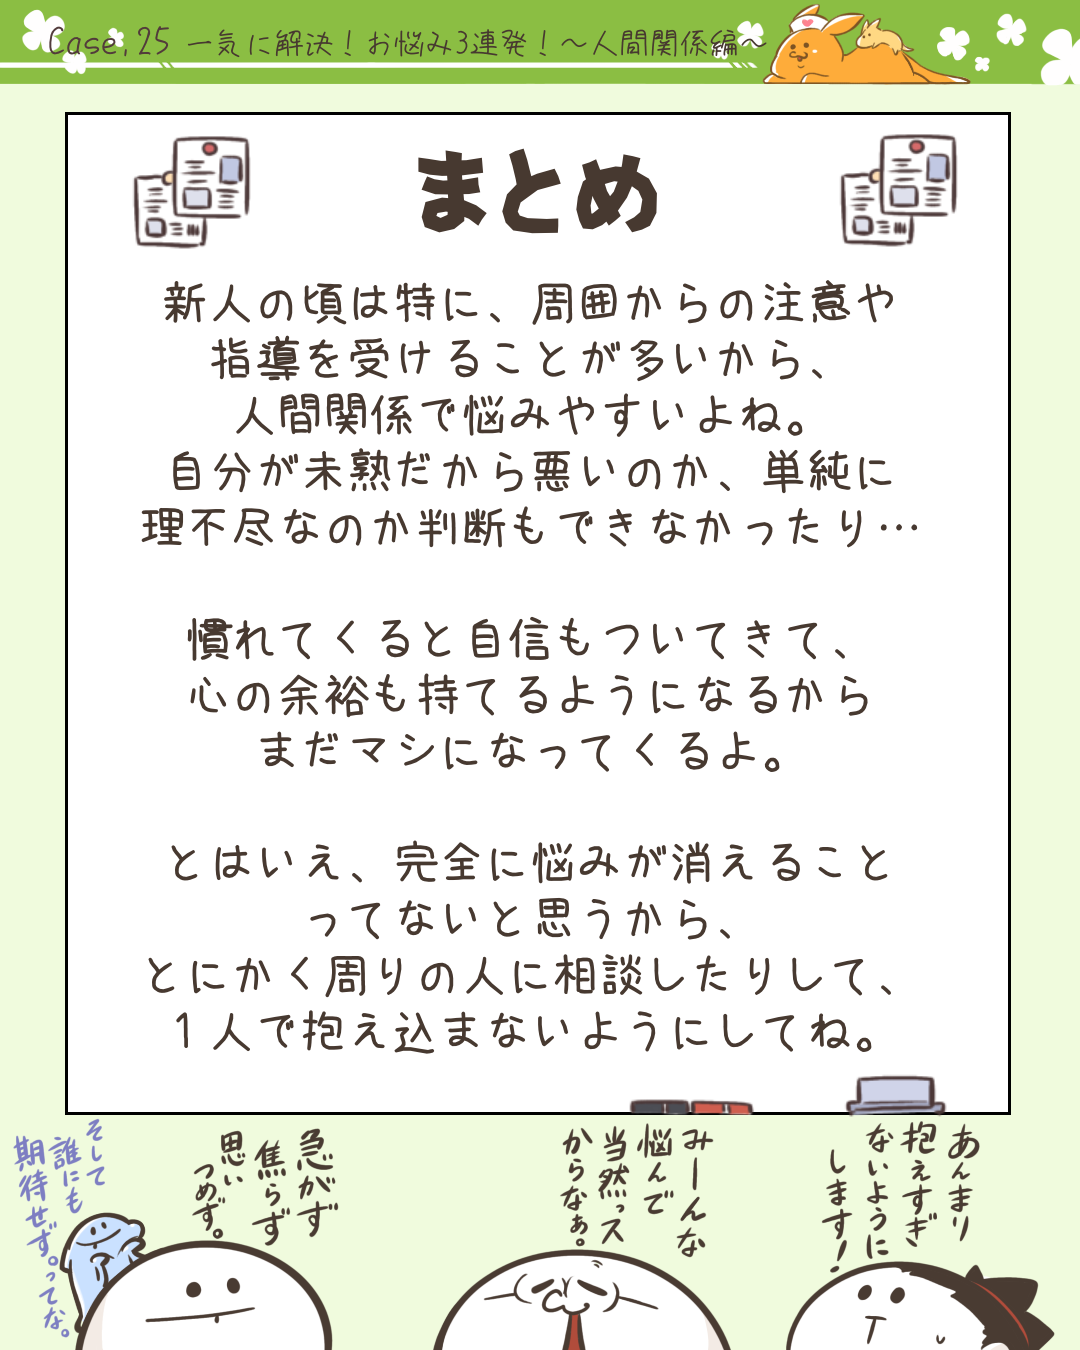 Case.25 一気に解決！お悩み3連発！～人間関係編～
まとめ
新人の頃は特に、周囲からの注意や
指導を受けることが多いから、
人間関係で悩みやすいよね。
自分が未熟だから悪いのか、単純に
理不尽なのか判断もできなかったり…
慣れてくると自信もついてきて、
心の余裕も持てるようになるから
まだマシになってくるよ。
とはいえ、完全に悩みが消えること
ってないと思うから、
とにかく周りの人に相談したりして、
１人で抱え込まないようにしてね。
あんまり
抱えすぎ
ないように
します！
みーんな
悩んで
当然っス
からなぁ。
急がず
焦らず
思い
つめず。
そして
誰にも
期待せず。ってな。